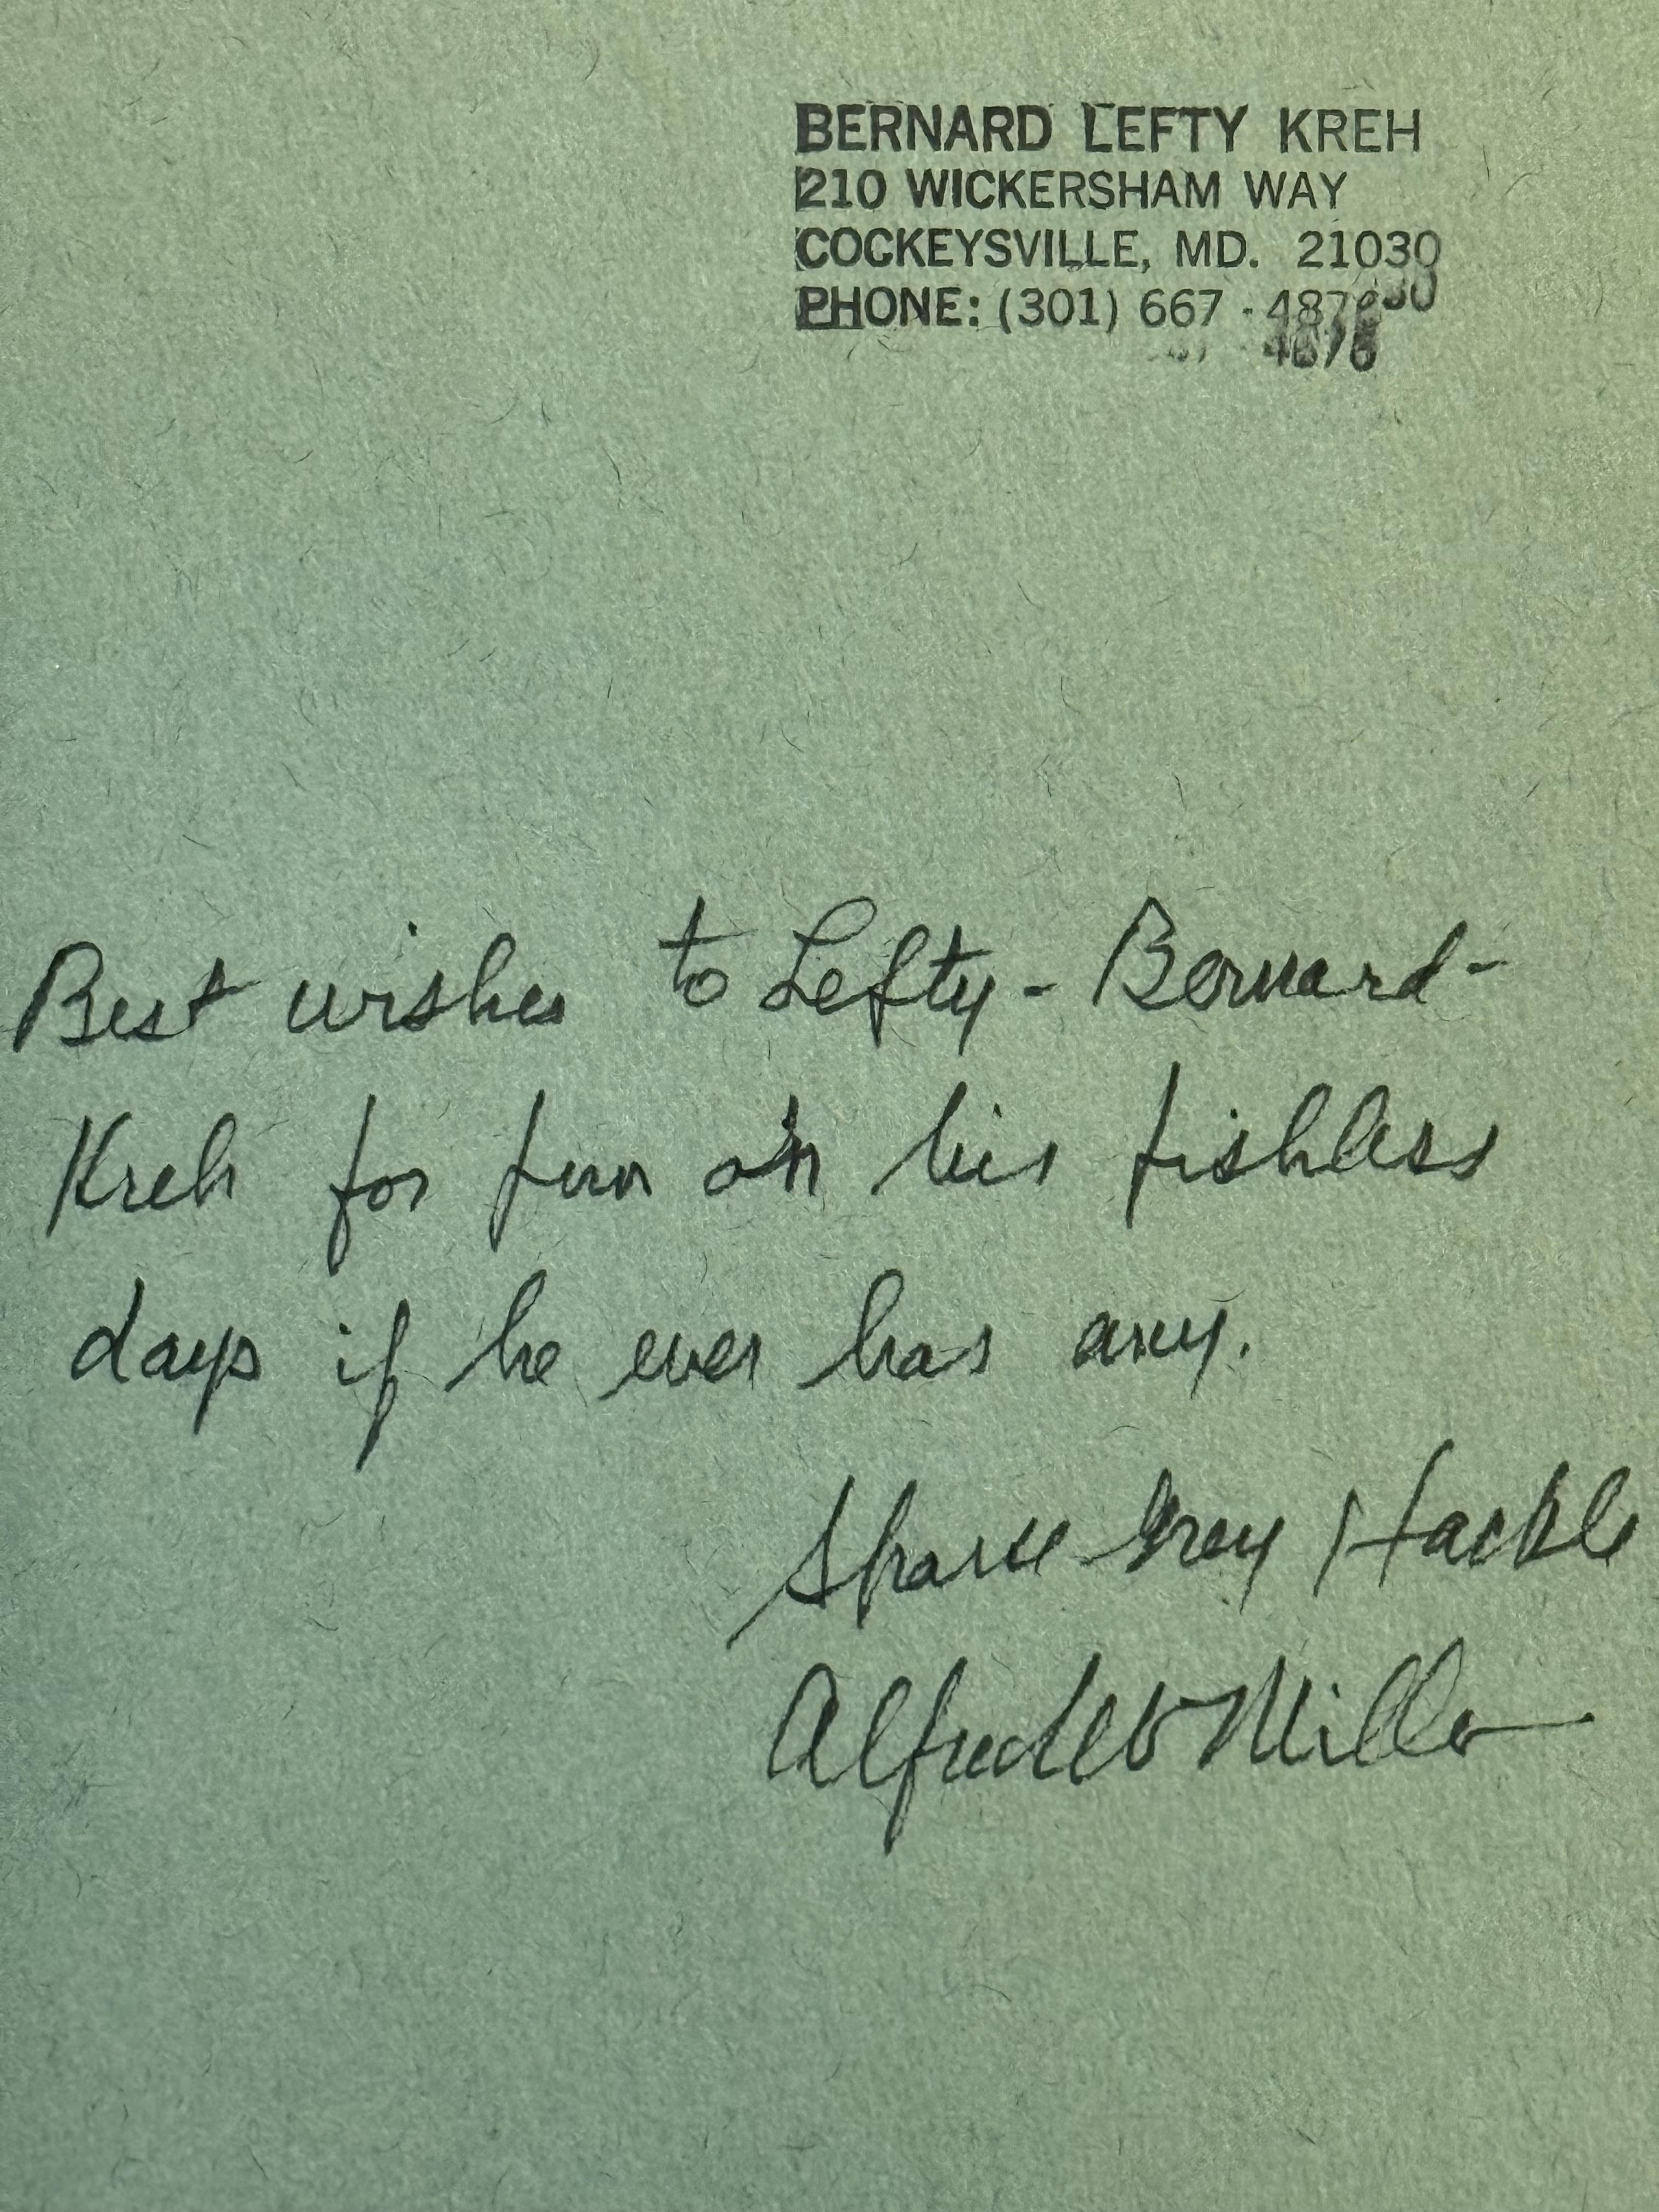 BERNARD LEFTY KREH
210 WICKERSHAM WAY
COCKEYSVILLE, MD. 21030
PHONE: (301) 667-4876
Best wishes to Lefty - Bernard -
Kreh for fun on his fishless
days if he ever has any.
Sparse Grey Hackle
Alfred W Miller